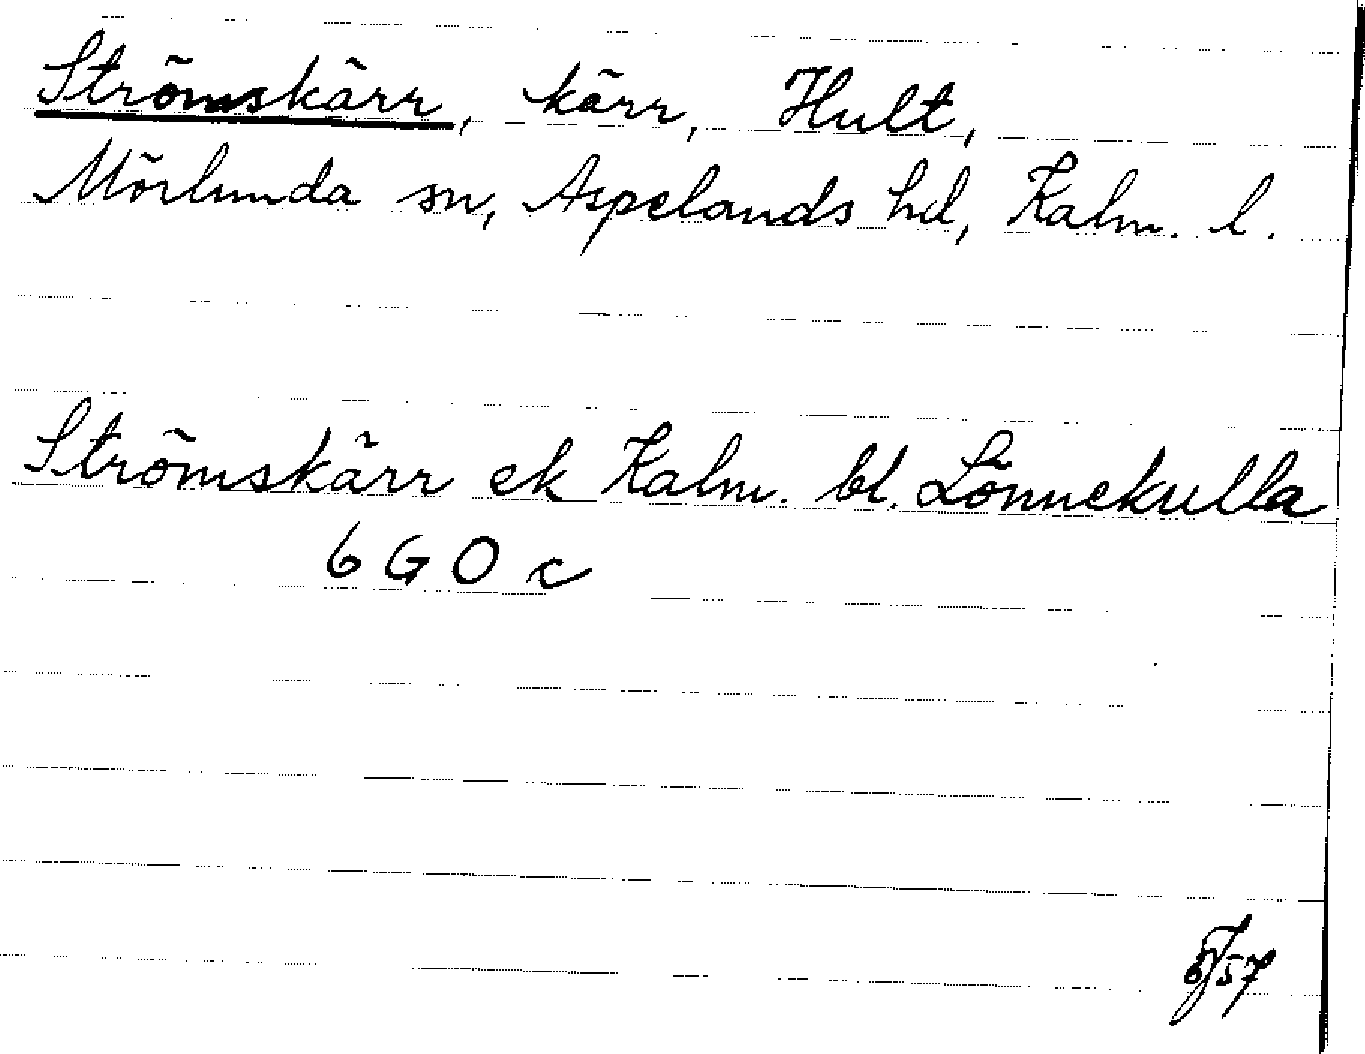 Strömskärr, kärr, Hult,
Mörlunda sn, Aspelands hd, Kalm. l.
Strömskärr ek Kalm. bl. Lönnekulla
6 G O c
57